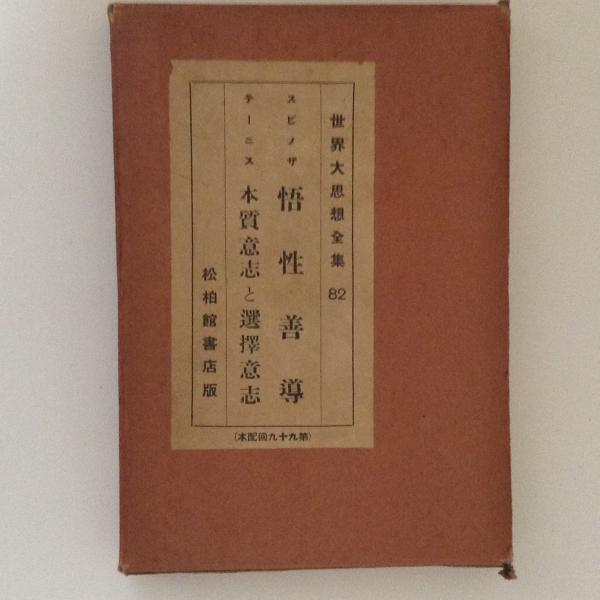 世界大思想全集 82
スピノザ 悟性善導
テーニス 本質意志と選擇意志
松柏館書店版
(本配回九十九第)